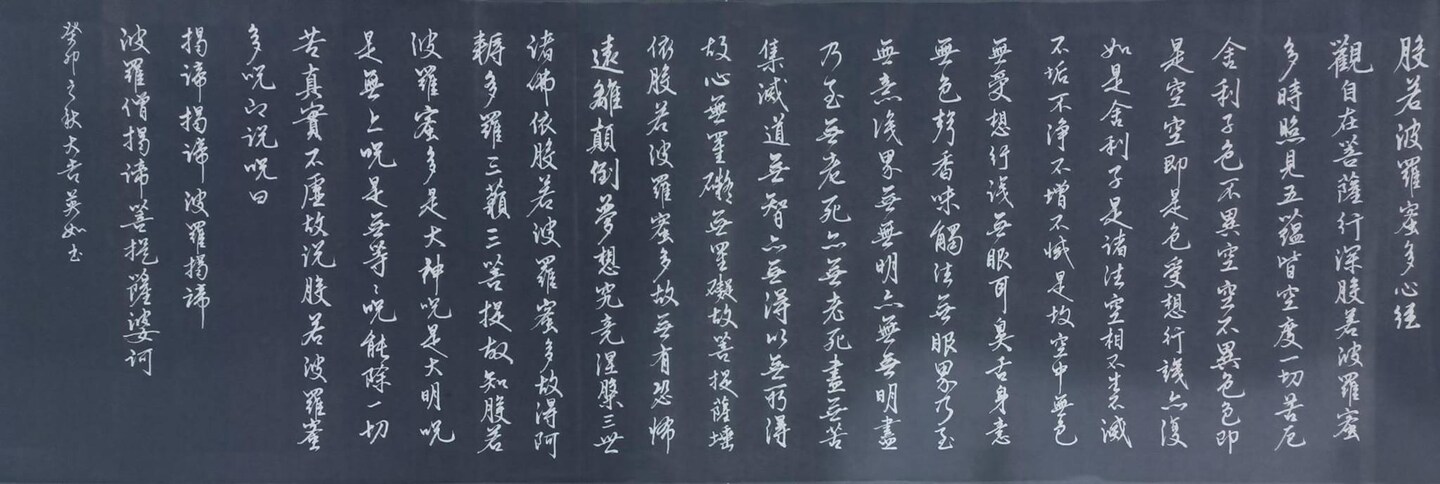 般若波羅蜜多心経
觀自在菩薩行深般若波羅蜜
多時照見五蘊皆空度一切苦厄
舍利子色不異空空不異色色即
是空空即是色受想行識亦復
如是舍利子是諸法空相不生不滅
不垢不淨不增不減是故空中無色
無受想行識無眼耳鼻舌身意
無色聲香味觸法無眼界乃至
無意識界無無明亦無無明盡
乃至無老死亦無老死盡無苦
集滅道無智亦無得以無所得
故心無罣礙無罣礙故菩提薩埵
依般若波羅蜜多故無有恐怖
遠離顛倒夢想究竟涅槃三世
諸佛依般若波羅蜜多故得阿
耨多羅三藐三菩提故知般若
波羅蜜多是大神咒是大明咒
是無上咒是無等〻咒能除一切
苦真實不虛故說般若波羅蜜
多咒即說咒曰
揭諦揭諦波羅揭諦
波羅僧揭諦菩提薩婆訶
癸卯之秋大吉英如书